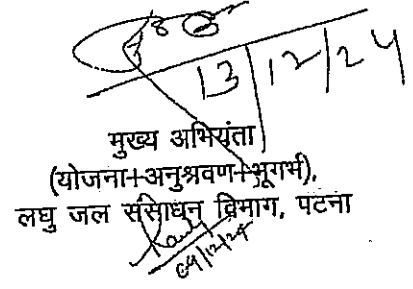 13/12/24
मुख्य अभियंता
(योजना+अनुश्रवण+भूगर्भ),
लघु जल संसाधन विभाग, पटना
09/12/24